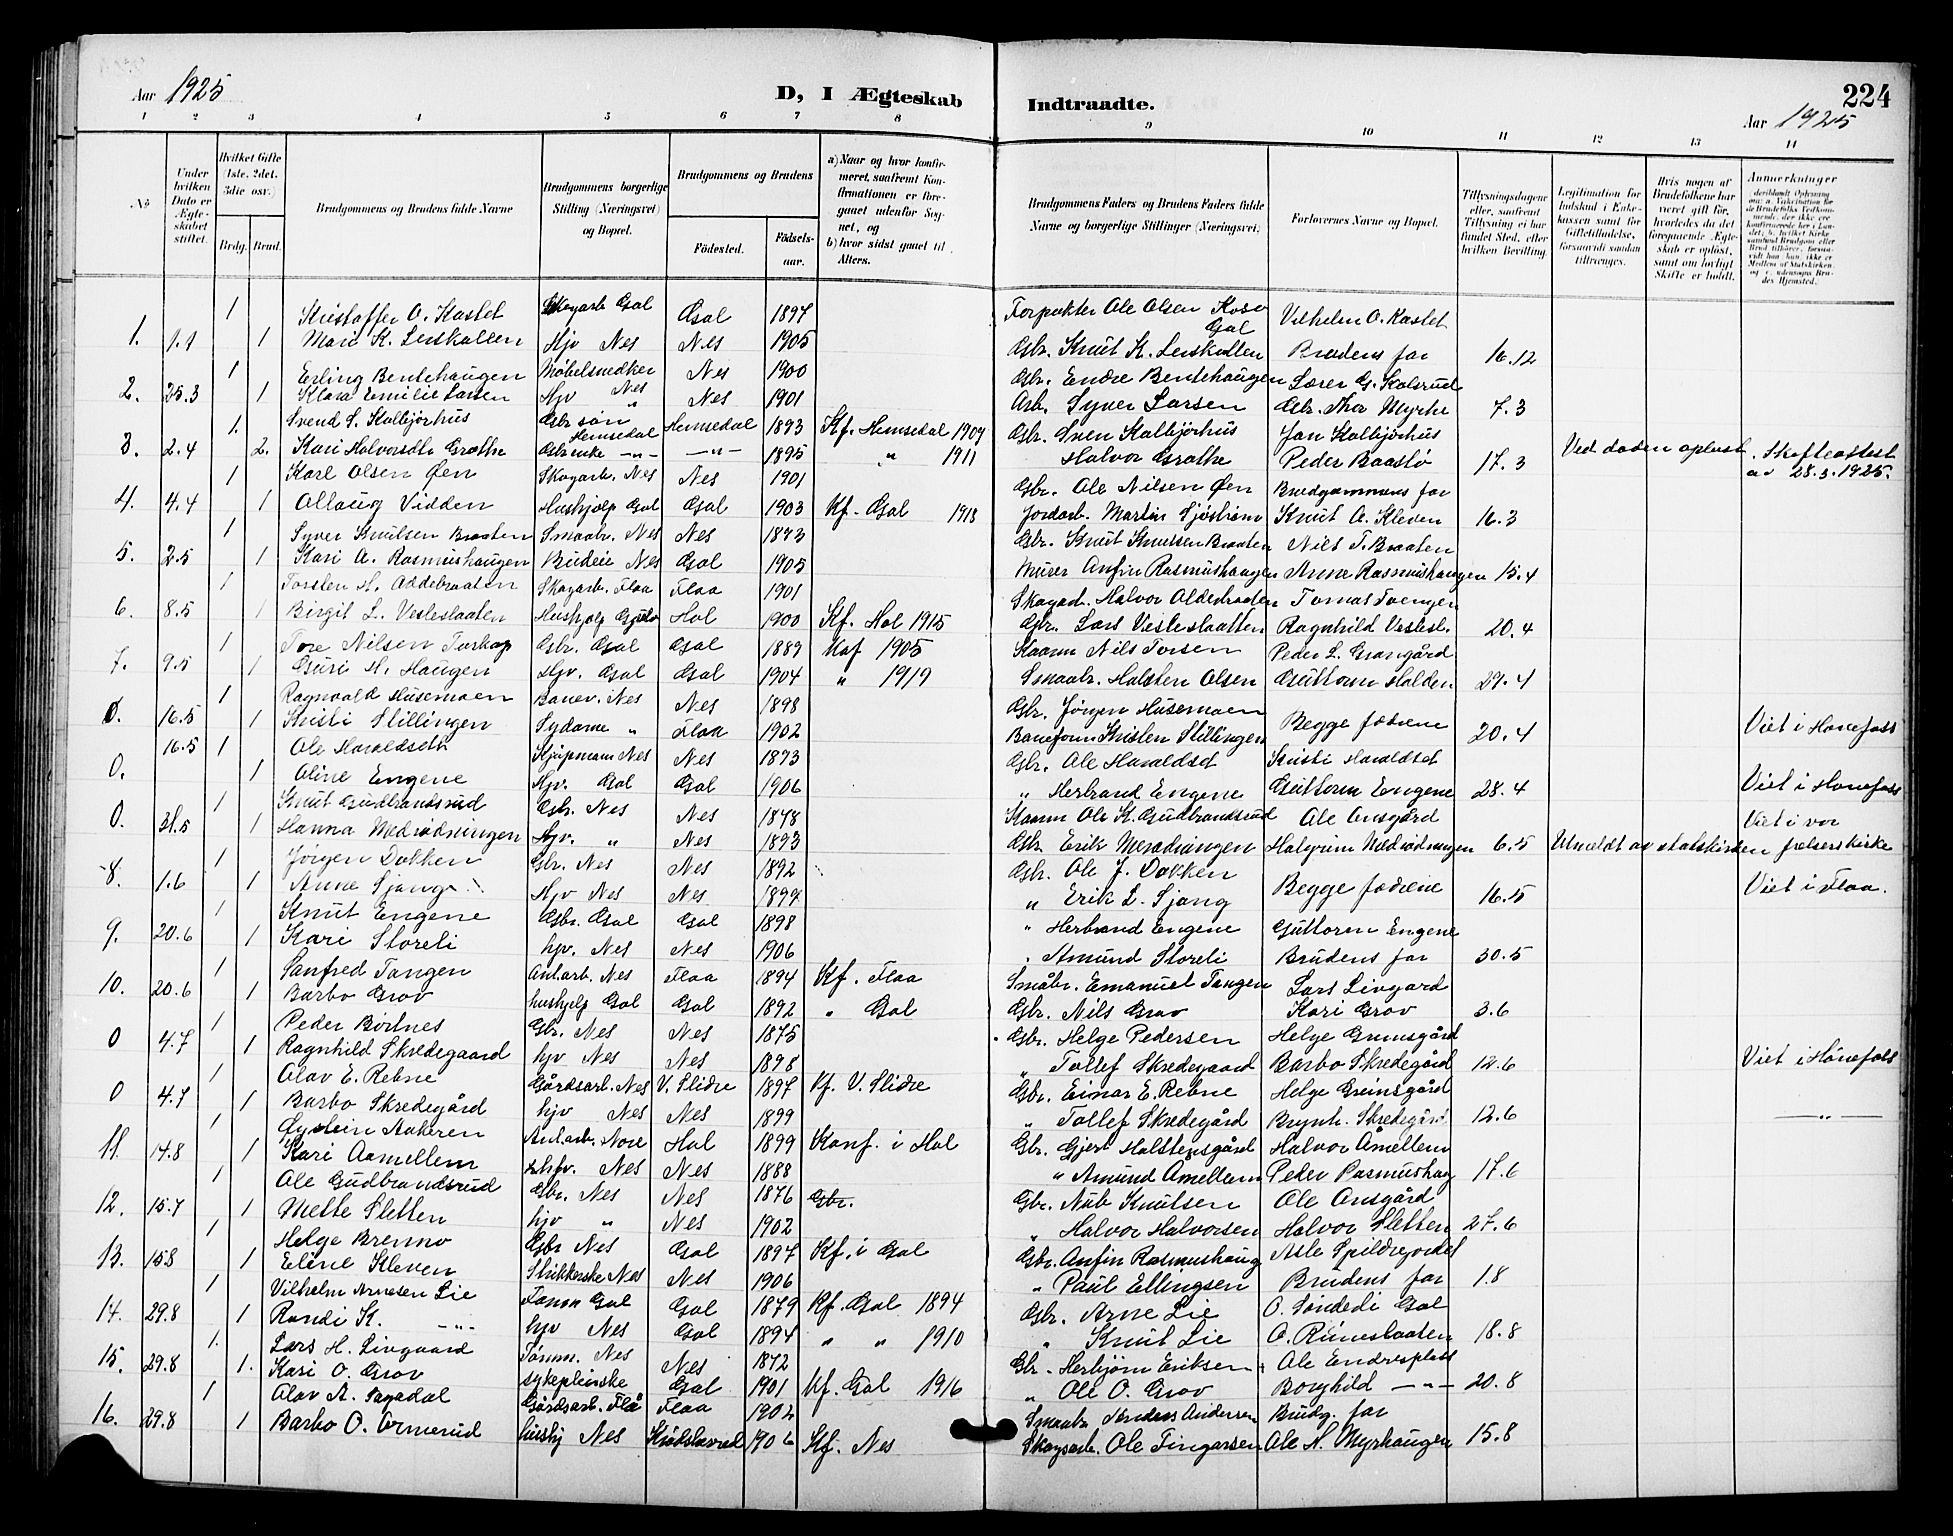 224
Aar 1925
D, I Ægteskab Indtraadte.
Aar 1925
1 2 3 4 5 6 7 8 9 10 11 12 13 14
№
Under hvilken Dato er Ægteskabet stiftet.
Hvilket Gifte (1ste, 2det, 3die osv.)
Brdg. Brud.
Brudgommens og Brudens fulde Navne
Brudgommens borgerlige Stilling (Næringsvei) og Bopæl.
Brudgommens og Brudens
Födested. Födselsaar.
a) Naar og hvor konfirmeret, saafremt Konfirmationen er foregaaet udenfor Sognet, og
b) hvor sidst gaaet til Alters.
Brudgommens Faders og Brudens Faders fulde Navne og borgerlige Stillinger (Næringsvei).
Forlovernes Navne og Bopæl.
Tillysningsdagene eller, saafremt Tillysning ei har fundet Sted, efter hvilken Bevilling.
Legitimation for Indskud i Enkekassen samt for Giftetilladelse, forsaavidt saadan tiltrænges.
Hvis nogen af Brudefolkene har været gift før, hvorledes da det foregaaende Ægteskab er oplöst, samt om lovligt Skifte er holdt.
Anmerkninger
1 Kristoffer O. Kastet Skogarb. Gol Gol 1897 Forpakter Ole Olsen Gol Vilhelm O. Kastet
1. 1.1 1 Mari K. Leiskollen Hjv Nes Nes 1905 Gbr. Knut K. Leiskollen Brudens far 16.12
1 Erling Bentehaugen Møbelsnedker Nes Nes 1900 Gbr. Endre Bentehaugen Lærer G. Kolsrud
2. 25.3 1 Klara Emilie Larsen Hjv " Nes 1901 Arb. Syver Larsen Gbr. Thor Myrhe 7.3
1. Svend S. Kolbjørhus Gbr søn Hemsedal Hemsedal 1893 Kf. Hemsedal 1909 Gbr. Sven Kolbjørhus Jon Kolbjørhus
3. 2.4 2. Kari Halvorsdtr Grøthe Gbr enke -"- -"- 1895 " 1911 Halvor Grøthe Peder Baastø 17.3 Ved døden opløst. Skifteattest av 28.3.1925.
1 Karl Olsen Øen Skogarb. Nes Nes 1901 Gbr. Ole Nilsen Øen Brudgommens far
4. 4.4 1 Ollaug Vidden Hushjelp Gol Gol 1903 Kf. Gol 1918 Jordarb. Martin Sjöström Knut A. Kleven 16.3
1 Syver Knutsen Braaten Smaabr. Nes Nes 1873 Gbr. Knut Knutsen Braaten Nils T. Braaten
5. 2.5 1 Kari A. Rasmushaugen Budeie Nes Gol 1905 Murer Anfin Rasmushaugen Anne Rasmushaugen 15.4
1 Torsten H. Oddebraaten Skogarb. Flaa Flaa 1901 Skogarb. Halvor Oldebraaten Tomas Toengen
6. 8.5 1 Birgit L. Vesleslaaten Hushjelp Hol 1900 Kf. Hol 1915 Gbr. Lars Vesleslaatten Ragnhild Veslesl. 20.4
1 Tore Nilsen Torkop Gbr. Gol Gol 1889 Kof 1905 Kaarm Nils Torsen Peder L. Grangård
7. 9.5 1 Guri H. Haugen Hjv. Gol Gol 1904 " 1919 Smaabr. Halsten Olsen Guttorm Halden 29.4
1 Ragnvald Husemoen Banev. Nes Nes 1898 Gbr. Jørgen Husemoen Begge fædrene
0. 16.5 1 Kristi Stillingen Sydame " Flaa 1902 Baneform Kristen Stillingen 20.4 Viet i Hønefoss
16.5 1 Ole Haraldseth Kjøpmann Nes Nes 1873 Gbr. Ole Haraldset Kristi Haraldset
0. 1 Oline Engene Hjv. Gol Gol 1906 " Herbrand Engene Guttorm Engene 28.4 Viet i Hønefoss
1 Knut Gudbrandsrud Gbr. Nes Nes 1878 Kaarm Ole K. Gudbrandsrud Ole Ansgård
0. 31.5 1 Hanna Medrødningen Hjv. " Nes 1893 Gbr Erik Halgrim Nedrødningen 6.5 Utmeldt av statskirken Viet i vor frelserskirke
1 Jørgen Dokken Gbr. Nes Nes 1892 Gbr. Ole J. Dokken Begge fædrene
8. 1.6 1 Anne Sjong Hjv Nes Nes 1899 " Erik L. Sjong 16.5 Viet i Flaa.
1 Knut Engene Gbr. Gol Gol 1898 " Herbrand Engene Guttorm Engene
9. 20.6 1 Kari Storeli hjv. Nes Nes 1906 " Amund Storeli Brudens far 30.5
1 Sanfred Tangen Anl.arb. Nes Flaa 1894 Kf. Flaa Småbr. Emanuel Tangen Lars Livgard
10. 20.6 1 Barbo Grov hushjelp Gol Gol 1892 " Gol Gbr. Nils Grov Kari Grov 3.6
1 Peder Børtnes Gbr. Nes Nes 1875 Gbr. Helge Pedersen Helge Grimsgård
0 4.7 1 Ragnhild Skredegaard hjv Nes Nes 1898 " Tollef Skredegaard Barbo Skredegård 12.6 Viet i Hønefoss
1 Olav E. Rebne Gårdsarb. Nes V. Slidre 1897 Kf. V. Slidre Gbr. Einar E. Rebne Helge Grimsgård
0 4.7 1 Barbo Skredegård hjv Nes Nes 1899 " Tollef Skredegård Brynh. Skredegård 12.6 -"-
1 Øystein Aakeren Anl.arb. Nore Hol 1899 Konf. i Hol Gbr. Gjert Holstensgård Halvor Åmellem
11. 14.8 1 Kari Aamellem hjv. Nes Nes 1888 " Amund Amellem Peder Rasmushag 17.6
1 Ole Gudbrandsrud Gbr. Nes Nes 1876 Gbr. Gbr. Nub Knutsen Ole Ansgård
12. 15.7 1 Mette Sletten hjv " Nes 1902 " Halvor Halvorsen Halvor Sletten 27.6
1 Helge Brenno Gbr Nes Gol 1897 Kf. i Gol Gbr. Anfin Rasmushaug Asle Spildrejordet
13. 15.8 1 Eline Kleven Strikkerske Nes Nes 1906 " Paul Ellingsen Brudens far 1.8
1 Vilhelm Arnesen Lie Gol Gol 1879 Kf. Gol 1894 Gbr. Arne Lie O. Søndedi Gol
14. 29.8 1 Randi K. -"- hjv Nes Gol 1894 " " 1910 " Knut Lie O. Rimeslaaten 18.8
1. Lars H. Livgaard Tømm. Nes Nes 1872 Gbr. Herbjørn Eriksen Ole Endresplass
15. 29.8 1. Kari O. Grov sykepleierske Gol 1901 Kf. Gol 1916 " Ole O. Grov Borghild -"- 20.8
1 Olav A. Sagadal Gårdsarb. Flå Flaa 1902 Smaabr Anders Andersen Brudg. far
16. 29.8 1 Barbo O. Ormerud hushj Nes Krødsherred 1906 Kf. Nes Skogsarb. Ole Fingarsen Ole N. Myrhaugen 15.8